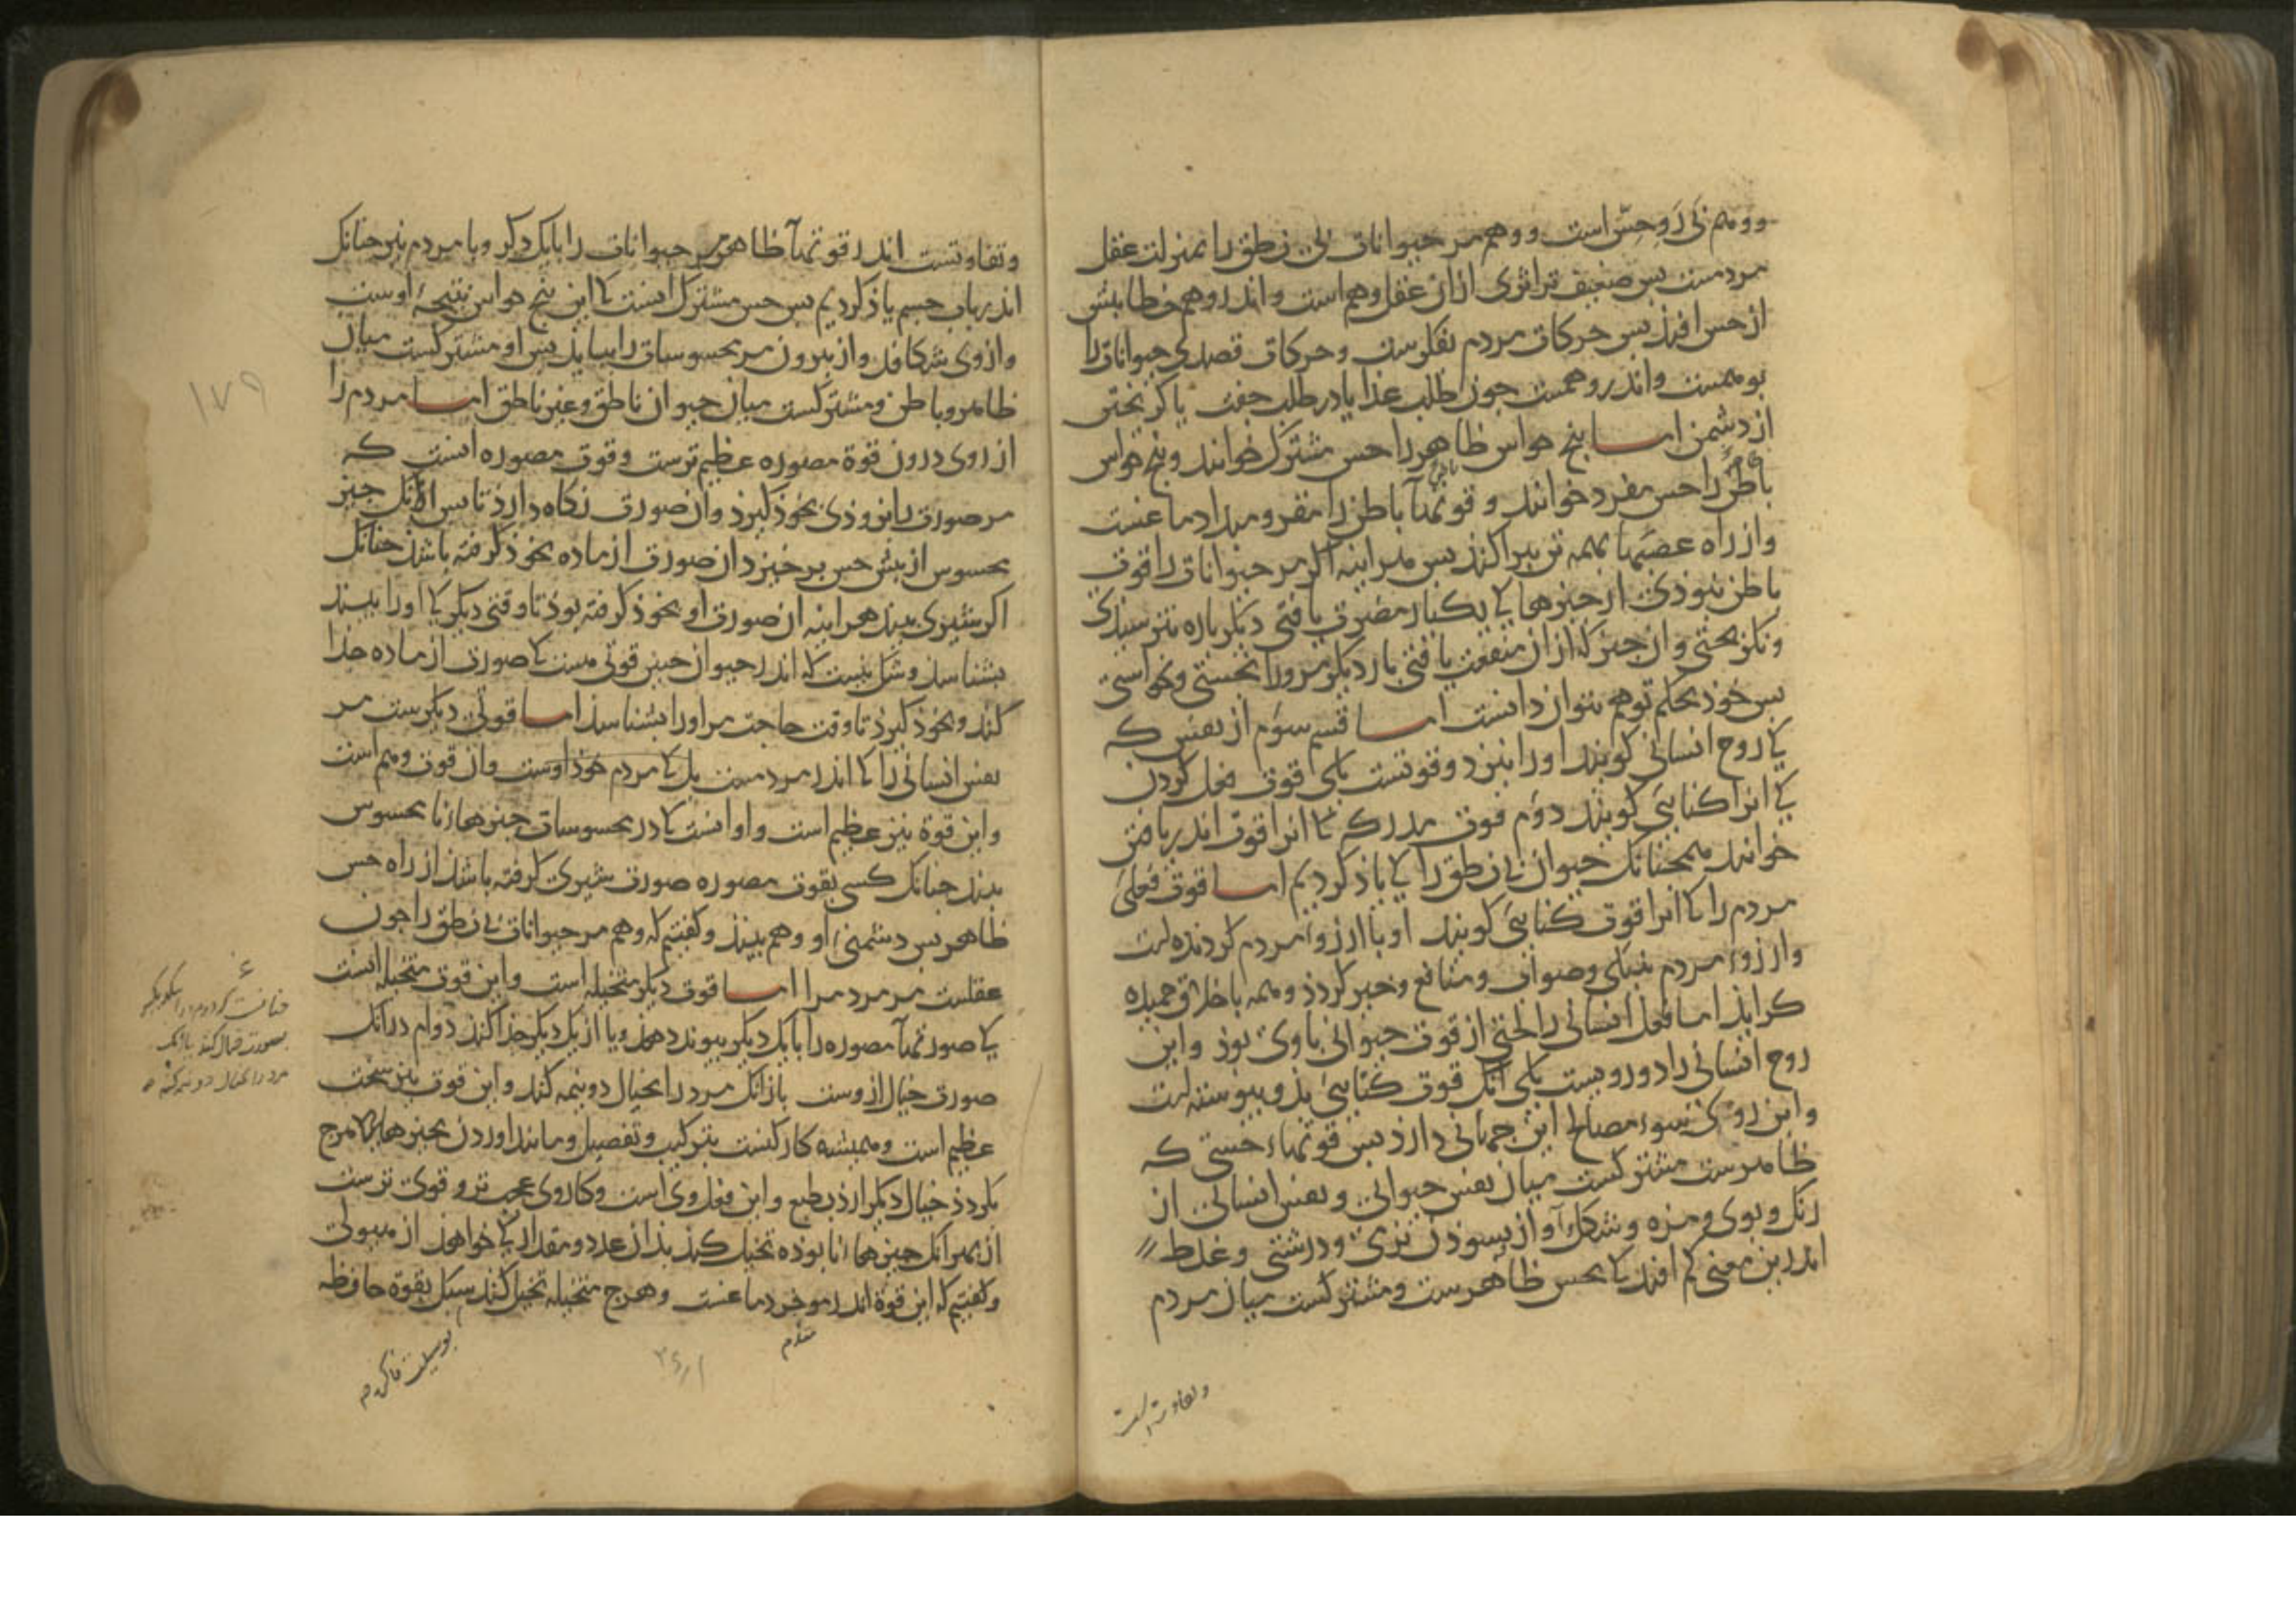 ووهم بی رَوحسّ است ووهم مر حیوانات بی نطق را بمنزلت عقل
مردمست بس ضعیف‌تر اثری از ان عقل وهم است و اندر وهم خطا بیش
از حس افتذ بس حرکات مردم بفکرست وحرکات قصدی حیوانات را
بوهمست واندر وهمست جون طلب غذا یا در طلب جفت یا کریختن
از دشمن اما بنج حواس ظاهر را حس مشترک خوانند و بنج حواس
باطن را حس مفرد خوانند و قوتهاآ باطن را مقر و مبدا دماغست
واز راه عصبها بهمه تن بیراکند بس هراینه اکر مر حیوانات را قوت
باطن نبوذی از جیزهایی کی یکبار مضرت یافتی دیکر باره نترسیذی
ونکریختی واز جیز که از ان منفعت یافتی بار دیکر مرورا نجستی ونخواستی
بس خوذ بحکم توهم بتوان دانست اما قسم سوم از نفس که
کی روح انسانی کویند اورا نیز دو قوتست یکی قوت فعل کردن
کی انرا کنایی کویند دوم قوت مدرکه کی انرا قوت اندر یافتن
خوانند همجنانک حیوان بی نطق را کی یاذ کردیم اما قوت فعلی
مردم را کی انرا قوت کنایی کویند او با ارزوء مردم کردنده است
وارزوء مردم بنیکی وصواب و منافع وخیر کردذ وهمه باخلاق حمیده
کرایذ اما فعل انسانی را لختی از قوت حیوانی یاوری بوذ واین
روح انسانی را دو رویست یکی آنک قوت کنایی بذو بیوسته است
واین روی سوء مصالح این جهانی دارذ بس قوتهاء حسّی که
ظاهرست مشترکست میان نفس حیوانی ونفس انسانی از
رنک وبوی ومزه وشکل وآواز بسوذن نرمی ودرشتی وغلط
اندرین معنی کم افتد کی بحس ظاهرست ومشترکست میان مردم
وتفاوتست
وتفاوتست اندر قوتهاآ ظاهر مر حیوانات را بایک دکر وبا مردم نیز جنانک
اندر باب جسم یاذ کردیم بس حس مشترک انست کی این بنج حواس نتیجهٔ اوست
وازوی شکافد واز بیرون مر محسوسات را بیابذ بس او مشترکست میان
ظاهر وباطن ومشترکست میان حیوان ناطق وغیر ناطق اما مردم را
از روی درون قوة مصوره عظیم‌ترست وقوت مصوره انست که
مر صورت را بزوذی بخوذ کیرذ وان صورت نکاه دارذ تا بس ازانک جیز
محسوس از بیش حس برخیزد ان صورت از ماده بخوذ کرفته باشذ جنانک
اکر شیری بیند هراینه ان صورت او بخوذ کرفته بوذ تا وقتی دیکر کی اورا بیند
بشناسذ وشک نیست که اندر حیوان جنین قوتی هست کی صورت از ماده جذا
کند وبخوذ کیرذ تا وقت حاجت مر اورا بشناسذ اما قوتی دیکرست مر
نفس انسانی را کی اندر مردمست بل کی مردم خوذ اوست وان قوت وهم است
واین قوة نیز عظیم است واو انست کی در محسوسات جیزهاء نا محسوس
بیند جنانک کسی بقوت مصوره صورت شیری کرفته باشد از راه حس
ظاهر بس دشمنی او وهم بیند وکفتیم که وهم مر حیوانات بی نطق را جون
عقلست مر مردم را اما قوت دیکر متخیله است واین قوت متخیله انست
کی صورتهاآ مصوره را بایک دیکر بیوند دهذ ویا از یک دیکر جذا کند دوام درانک
صورت خیال ازوست بازانک مرد را بخیال دو نیمه کند واین قوت نیز سخت
عظیم است وهمیشه کارکنست بترکیب وتفصیل ومانند اوردن بجیزها کی هرج
بکردذ خیال دیکر ارذ بطبع واین فعل وی است وکار وی عجب‌تر وقوی‌ترست
از بهر انک جیزهاء نا بوذه تخیل کند بذان عدد ومقدار کی خواهذ از هیولی
وکفتیم که این قوة اندر موخر دماغست وهرج متخیله تخیل کند سبیل بقوة حافظه
مقدم
۱۷۹